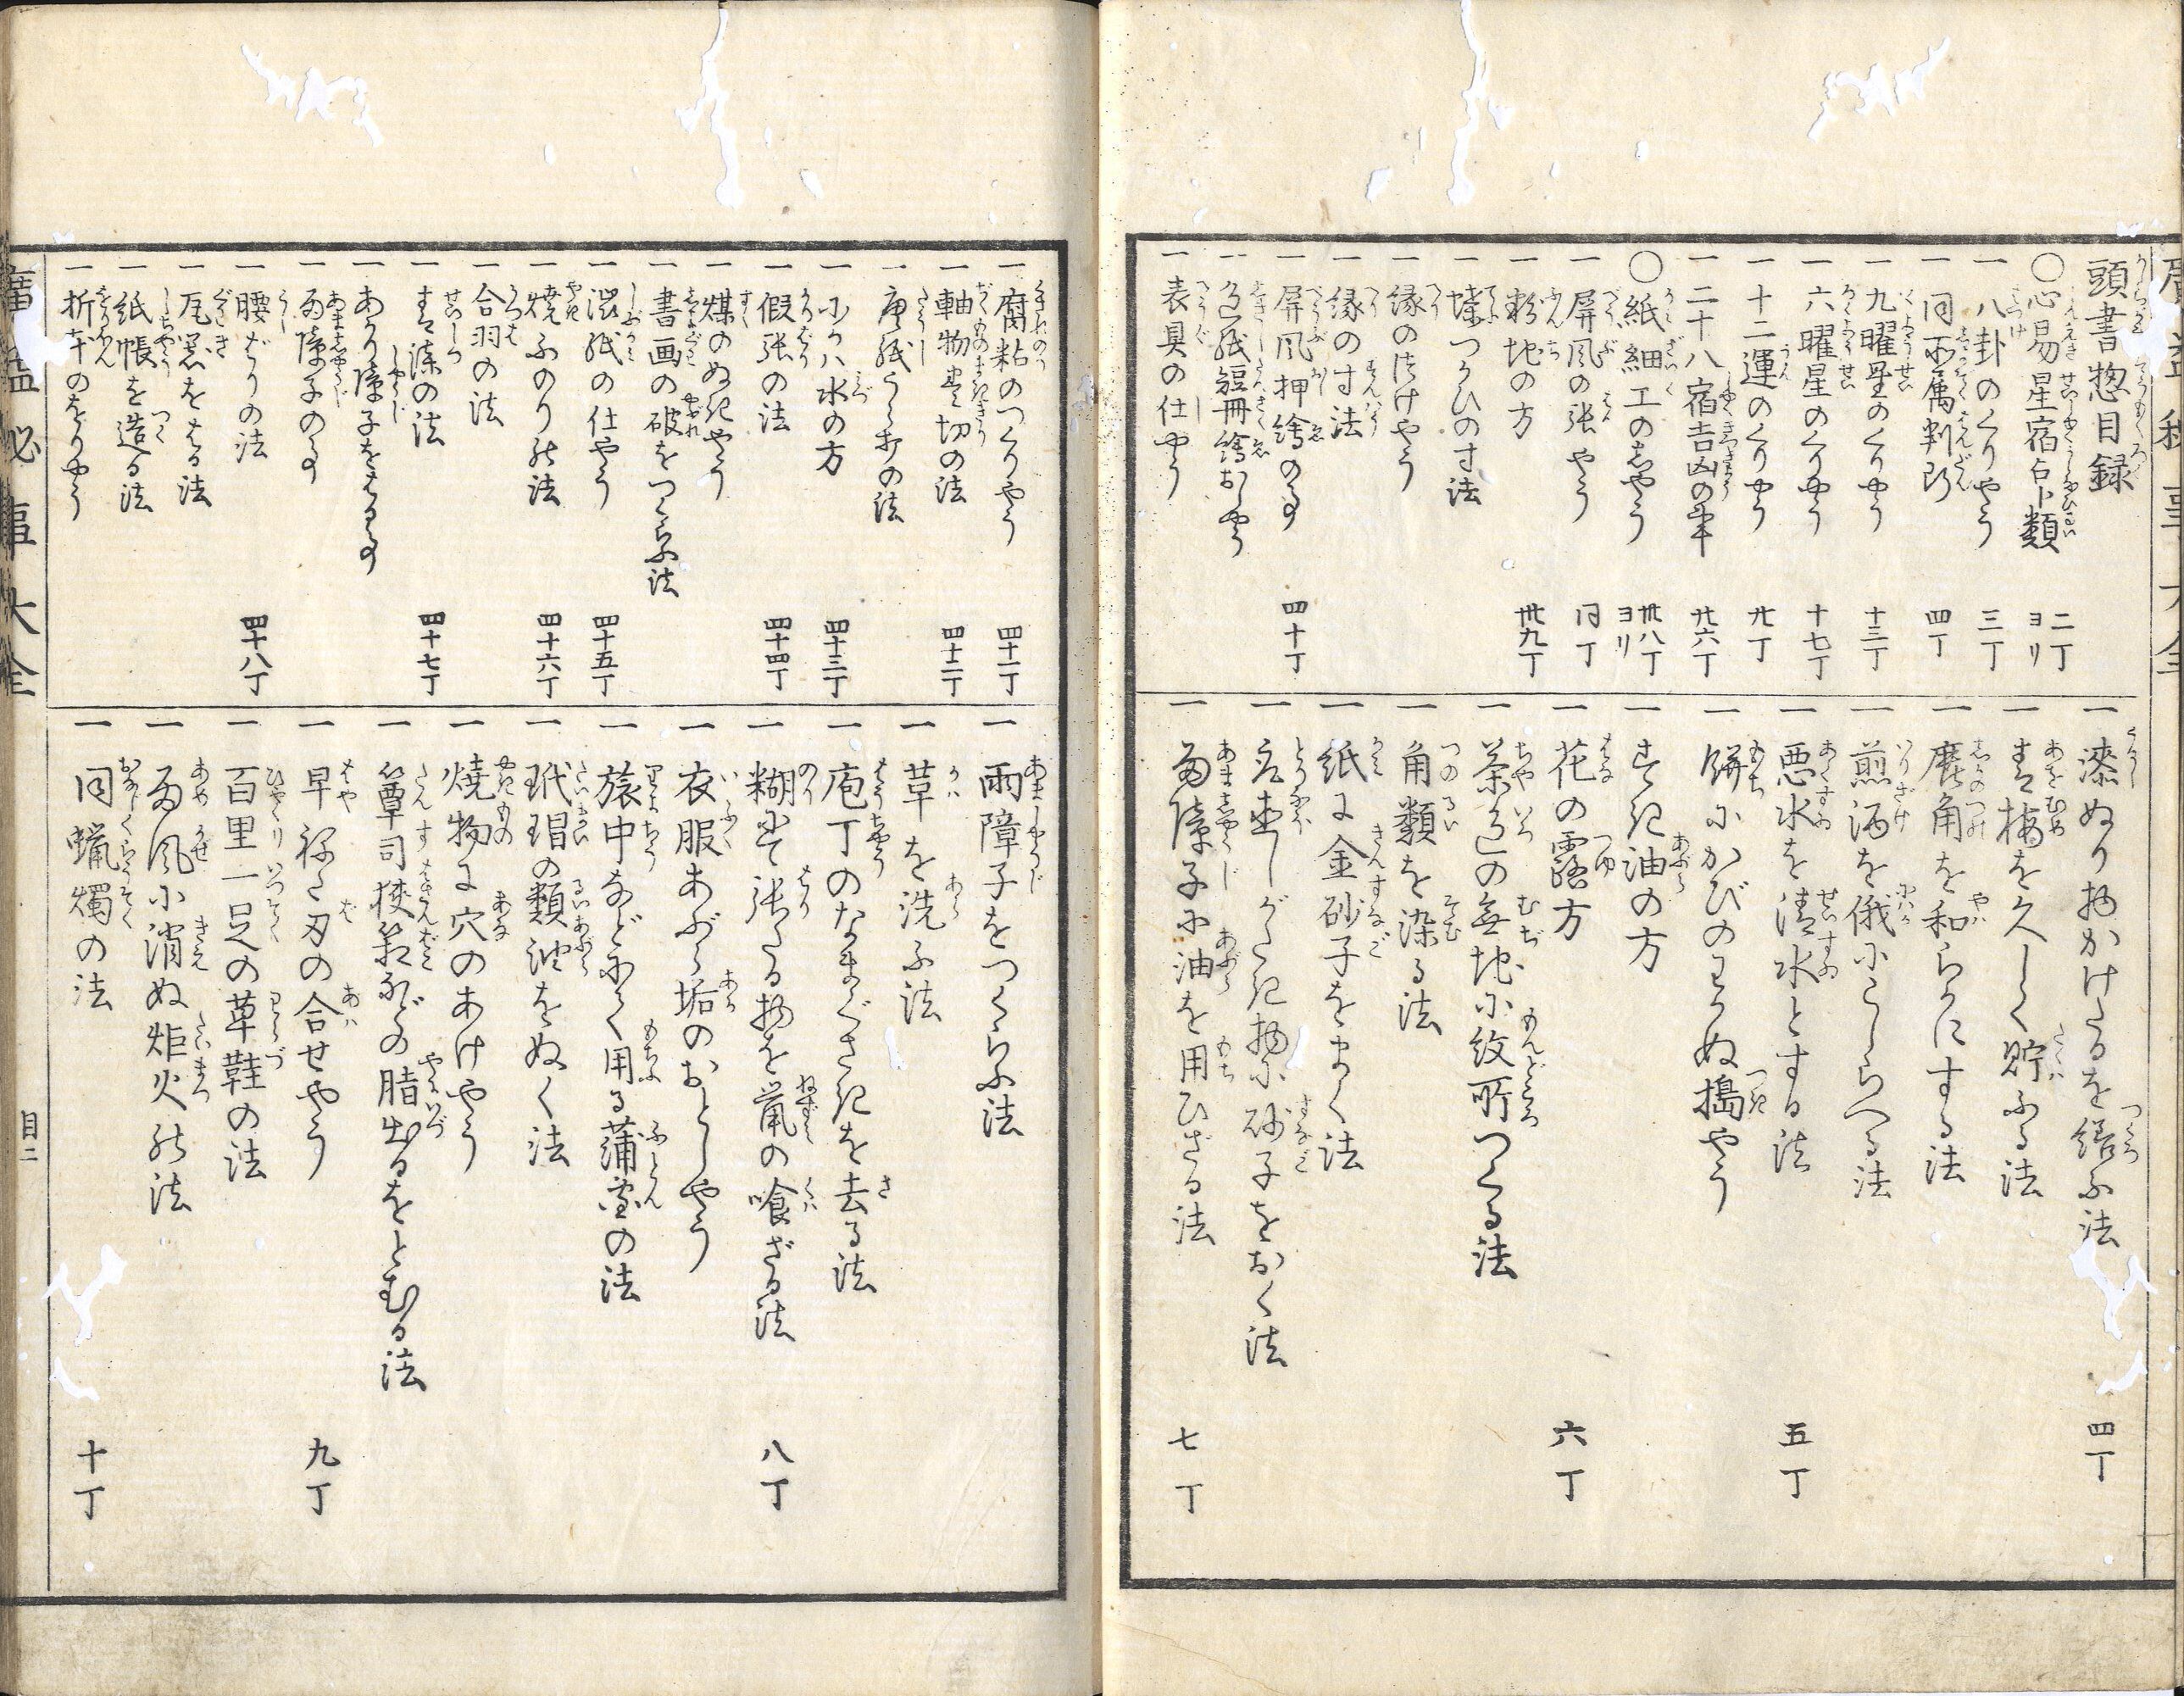 頭書惣目録
〇心易星宿占卜類 二丁ヨリ
一八卦のくりやう 三丁
一同所属判断 四丁
一九曜星のくりやう 十三丁
一六曜星のくりやう 十七丁
一十二運のくりやう 廿丁
一二十八宿吉凶の事 廿六丁
〇紙細工の志やう 卅八丁ヨリ
一屏風の張やう 同丁
一粉地の方 卅九丁
一蝶つがひの寸法
一縁のつけやう
一縁の寸法
一屏風押繪の事 四十丁
一色紙短冊繪おしやう
一表具の仕やう
一漆ぬり物かけたるを繕ふ法 四丁
一青梅を久しく貯ふる法
一鹿角を和らかにする法
一煎酒を俄にこしらへる法
一悪水を清水とする法 五丁
一餅にかびのこぬ搗やう
一すき油の方
一花の露方 六丁
一茶色の無地に紋所つくる法
一角類を染る法
一紙に金砂子をまく法
一がたき物に砂子をおく法
一雨障子に油を用ひざる法 七丁
一腐粘のつくりやう 四十一丁
一軸物巻切の法 四十二丁
一唐紙うら打の法
一水の方 四十三丁
一假張の法 四十四丁
一煤のぬきやう
一書画の破をつくらふ法
一澁紙の仕やう 四十五丁
一焼ふのりの法 四十六丁
一合羽の法
一青漆の法 四十七丁
一あかり障子をはる事
一雨障子の事
一腰ばりの法 四十八丁
一尾黒をはる法
一紙帳を造る法
一折本のをりやう
一雨障子をつくらふ法
一革を洗ふ法
一庖丁のなまぐさきを去る法
一糊にて張たる物を鼠の喰ざる法 八丁
一衣服あぶら垢のおとしやう
一旅中などにて用る蒲団の法
一玳瑁の類油をぬく法
一焼物に穴のあけやう
一箪司挟箱などの脂出るをとむる法
一早ねた刃の合せやう 九丁
一百里一足の草鞋の法
一雨風に消ぬ炬火の法
一同蝋燭の法 十丁
廣益秘事大全
目二